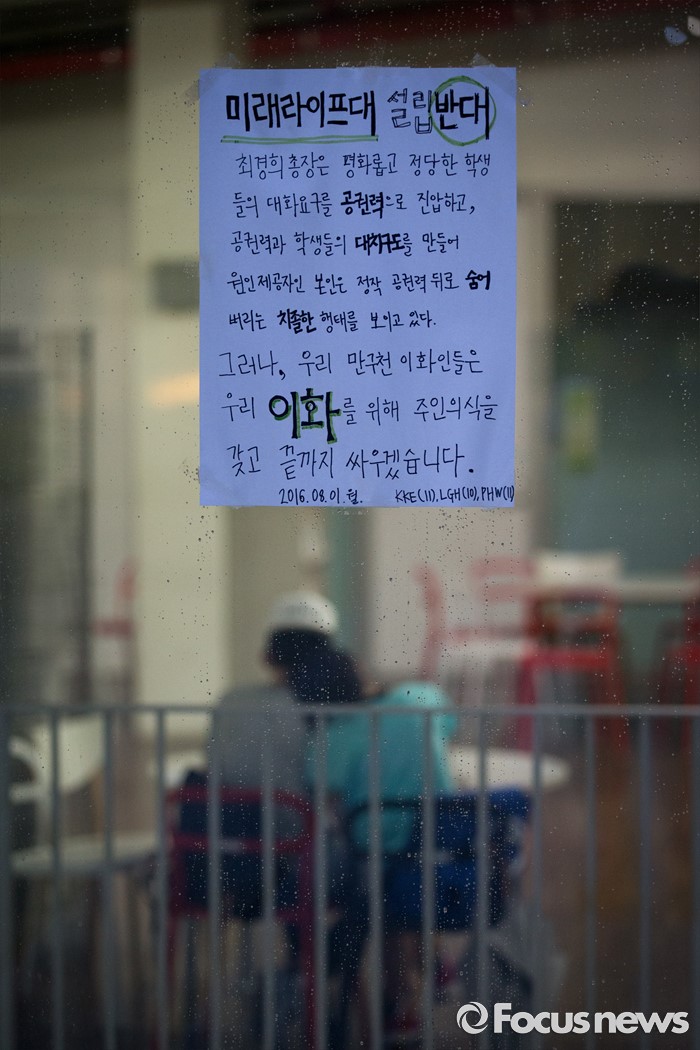 미래라이프대 설립반대
최경희 총장은 평화롭고 정당한 학생
들의 대화요구를 공권력으로 진압하고,
공권력과 학생들의 대치구도를 만들어
원인제공자인 본인은 정작 공권력 뒤로 숨어
버리는 치졸한 행태를 보이고 있다.
그러나, 우리 만구천 이화인들은
우리 이화를 위해 주인의식을
갖고 끝까지 싸우겠습니다.
2016.08.01.월. KKE(11), LGH(10), PHW(11)
Focus news